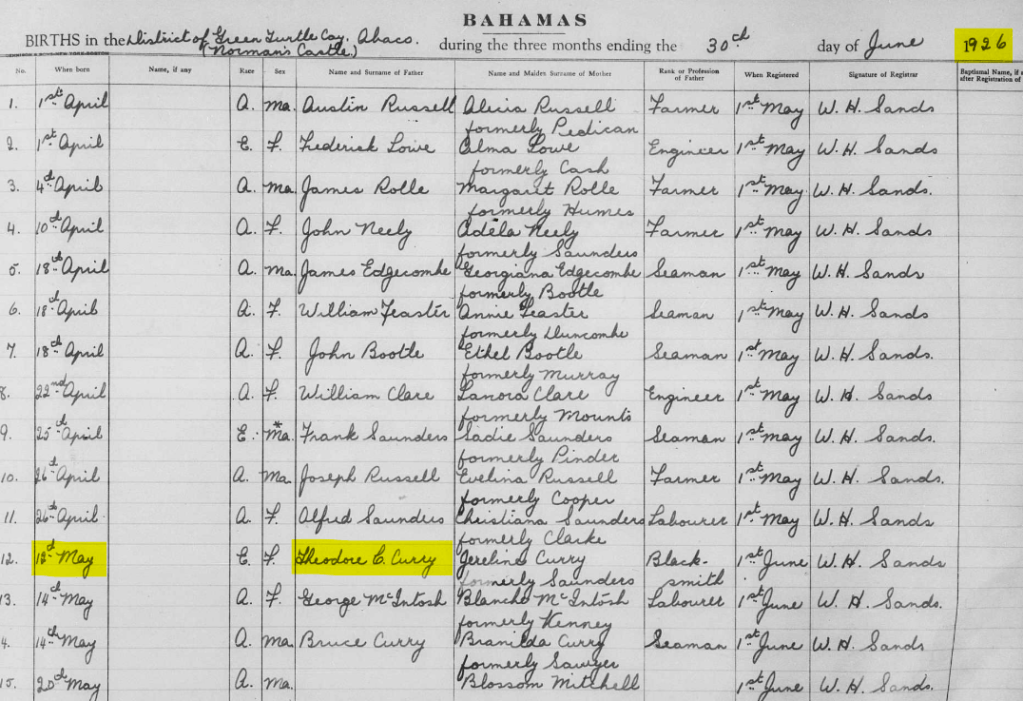 BAHAMAS
BIRTHS in the District of Green Turtle Cay, Abaco. during the three months ending the 30th day of June 1926
(Norman's Castle)
No. When born Name, if any Race Sex Name and Surname of Father Name and Maiden Surname of Mother Rank or Profession of Father When Registered Signature of Registrar Baptismal Name, if after Registration of
1. 1st April A. Ma. Austin Russell Alicia Russell Farmer 1st May W. H. Sands
formerly Pedican
2. 1st April E. F. Frederick Lowe Alma Lowe Engineer 1st May W. H. Sands
formerly Cash
3. 4th April A. Ma. James Rolle Margaret Rolle Farmer 1st May W. H. Sands.
formerly Humes
4. 10th April A. F. John Neely Adela Neely Farmer 1st May W. H. Sands
formerly Saunders
5. 18th April A. Ma. James Edgecombe Georgiana Edgecombe Seaman 1st May W. H. Sands
formerly Bootle
6. 18th April A. F. William Feaster Annie Feaster Seaman 1st May W. H. Sands
formerly Duncombe
7. 18th April A. F. John Bootle Ethel Bootle Seaman 1st May W. H. Sands.
formerly Murray
8. 22nd April A. F. William Clare Lanora Clare Engineer 1st May W. H. Sands
formerly Mounts
9. 25th April E. Ma. Frank Saunders Sadie Saunders Seaman 1st May W. H. Sands.
formerly Pinder
10. 26th April A. Ma. Joseph Russell Evelina Russell Farmer 1st May W. H. Sands.
formerly Cooper
11. 26th April A. F. Alfred Saunders Christiana Saunders Labourer 1st May W. H. Sands
formerly Clarke
12. 12th May E. F. Theodore C. Curry Jereline Curry Black- 1st June W. H. Sands
formerly Saunders smith
13. 14th May A. F. George McIntosh Blanche McIntosh Labourer 1st June W. H. Sands.
formerly Kenney
4. 14th May A. Ma. Bruce Curry Branilda Curry Seaman 1st June W. H. Sands
formerly Sawyer
15. 20th May A. Ma. Blossom Mitchell 1st June W. H. Sands.